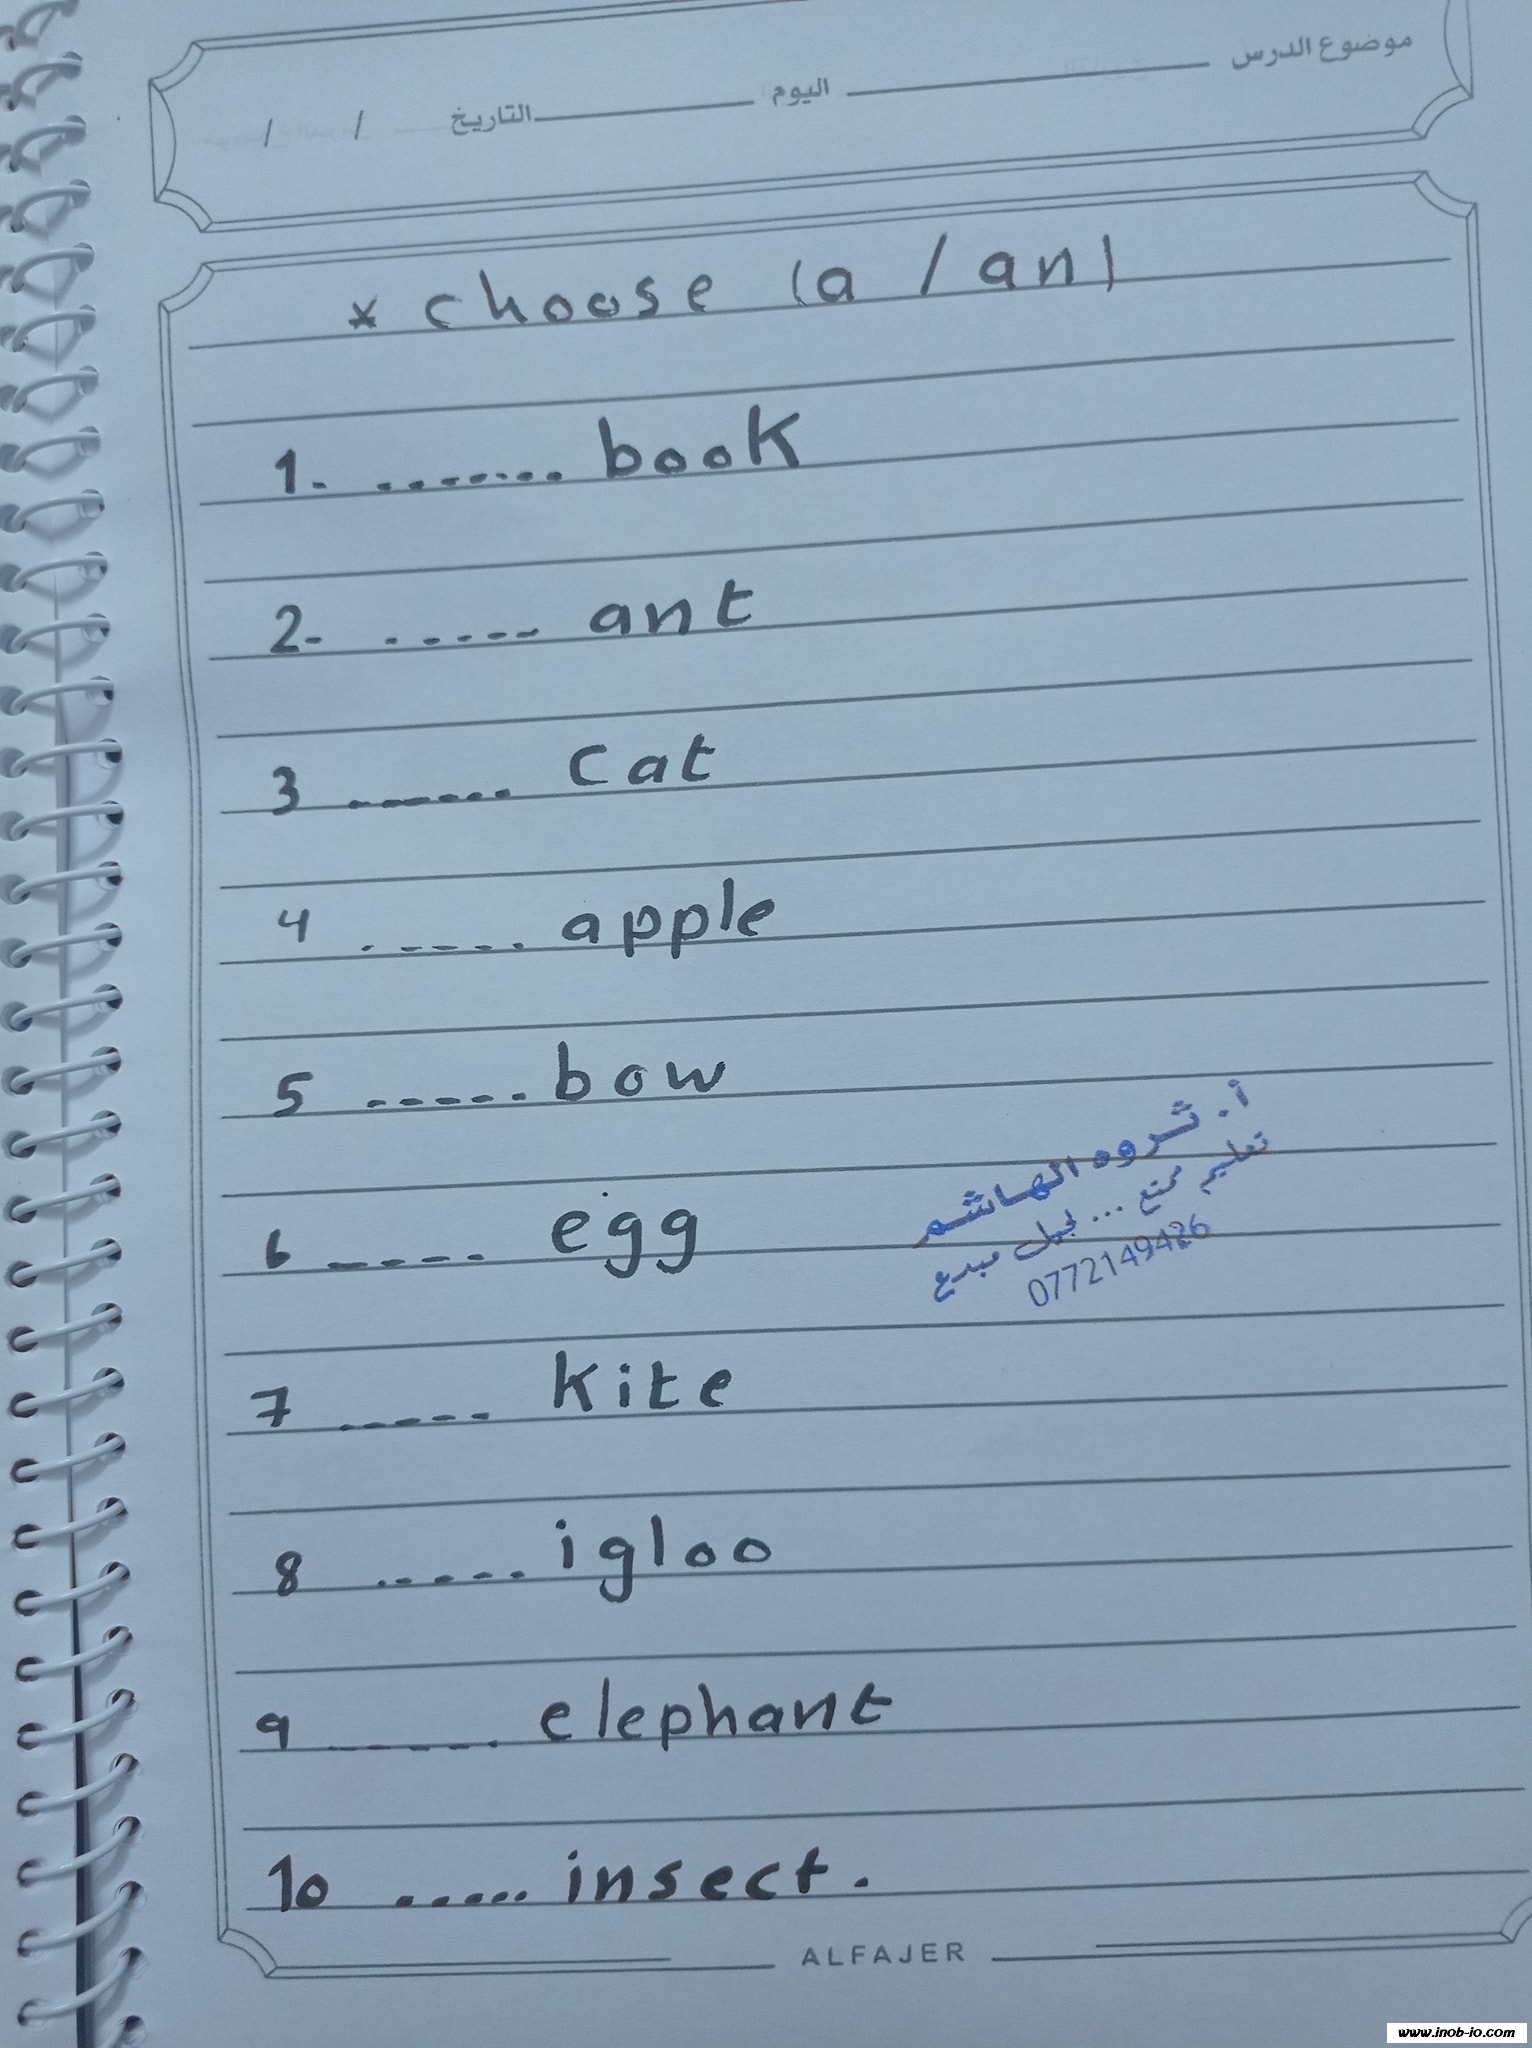 موضوع الدرس ــــــــ اليوم ــــــــ التاريخ / /
* choose (a / an)
1- ........ book
2- ...... ant
3 ....... cat
4 ...... apple
5 ...... bow
6 ..... egg
7 ..... kite
8 ...... igloo
9 ...... elephant
10 ...... insect.
أ. ثروه الهاشم
تعليم ممتع ... لجيل مبدع
0772149426
ALFAJER
www.inob-io.com